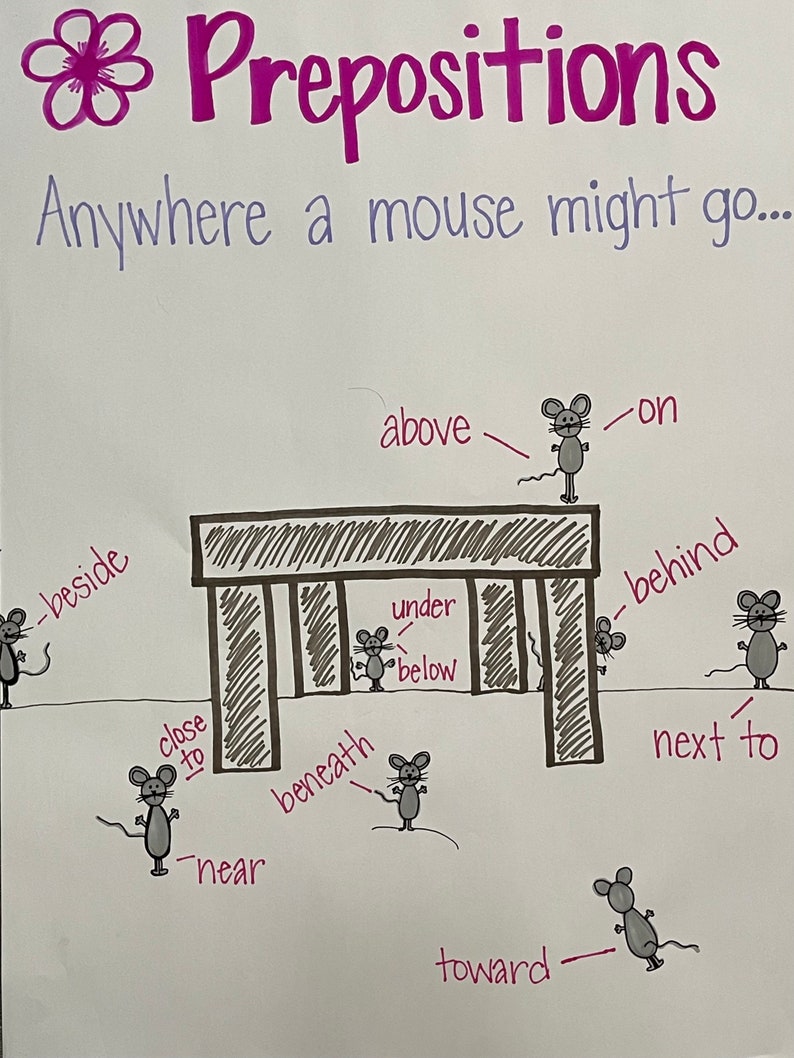 Prepositions
Anywhere a mouse might go...
above
on
beside
under
below
behind
close
to
beneath
next to
near
toward